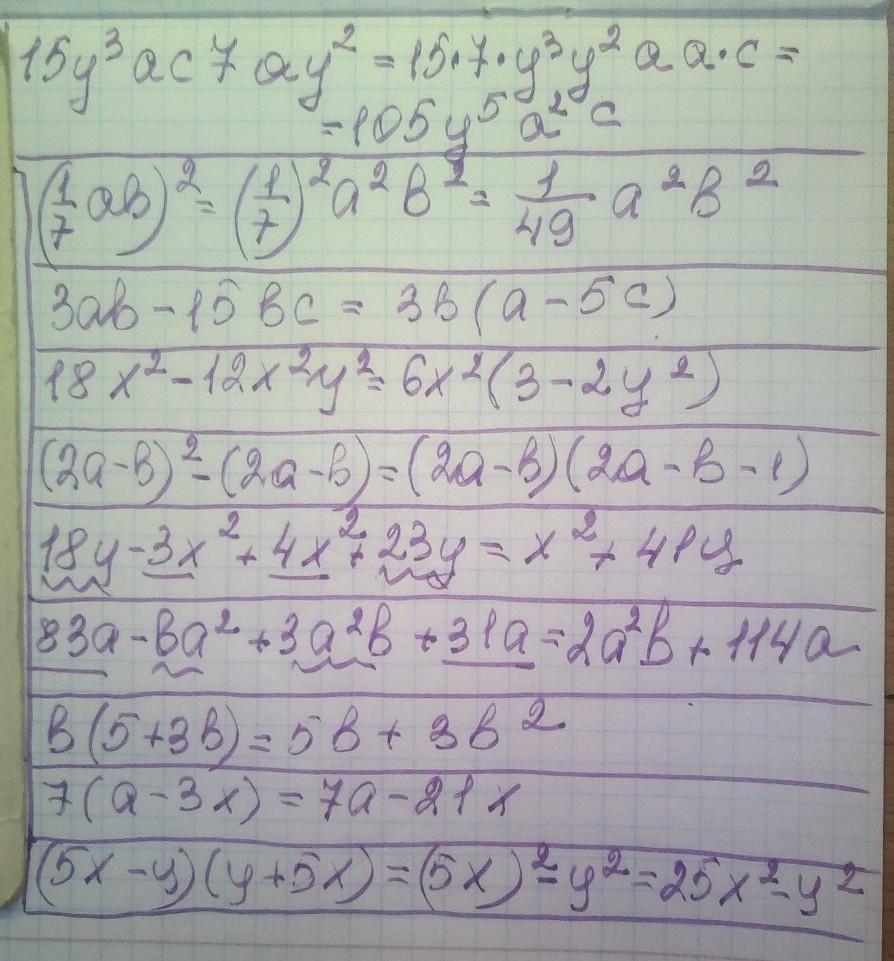 15y³ac7ay² = 15·7·y³y²aa·c =
= 105y⁵a²c
(1/7 ab)² = (1/7)²a²b² = 1/49 a²b²
3ab - 15bc = 3b(a - 5c)
18x² - 12x²y² = 6x²(3 - 2y²)
(2a - b)² - (2a - b) = (2a - b)(2a - b - 1)
18y - 3x² + 4x² + 23y = x² + 41y
83a - ba² + 3a²b + 31a = 2a²b + 114a
b(5 + 3b) = 5b + 3b²
7(a - 3x) = 7a - 21x
(5x - y)(y + 5x) = (5x)² - y² = 25x² - y²